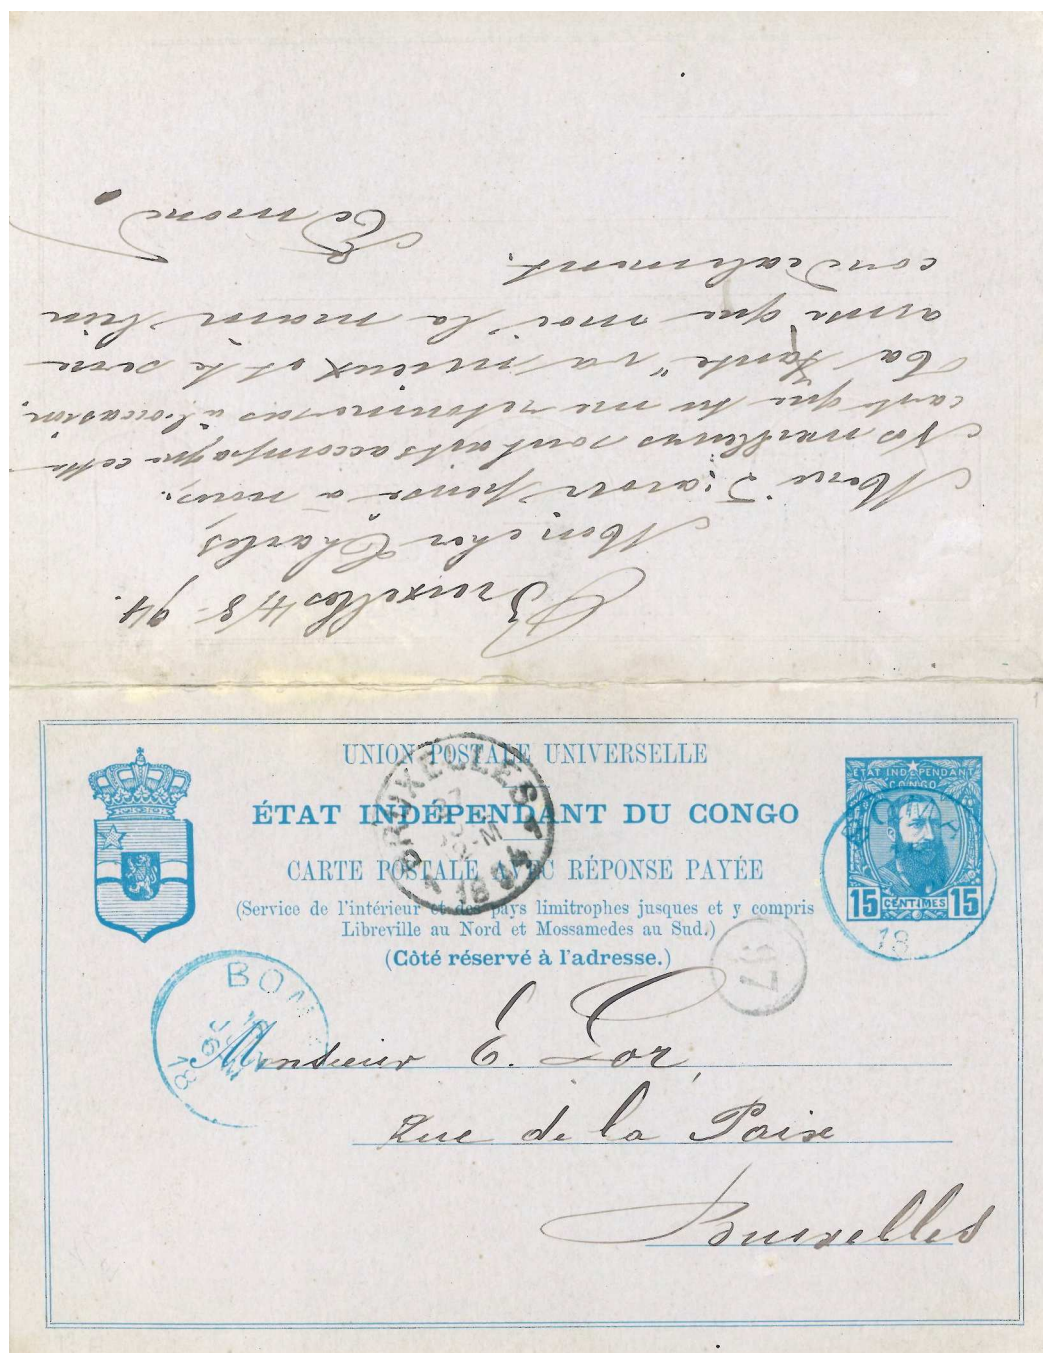 Bruxelles 4/8-94.
Mon cher Charles,
Merci d'avoir pensé à nous.
Nos meilleurs souhaits accompagne cette
carte que tu me retourneras à l'occasion.
La tante" va mieux et te serre
ainsi que moi la main bien
cordialement.
Edmond
UNION POSTALE UNIVERSELLE
ÉTAT INDÉPENDANT DU CONGO
CARTE POSTALE AVEC RÉPONSE PAYÉE
(Service de l'intérieur et des pays limitrophes jusques et y compris
Libreville au Nord et Mossamedes au Sud.)
(Côté réservé à l'adresse.)
ETAT INDEPENDANT
CONGO
15 CENTIMES 15
BRUXELLES
1894
BOMA
18
BOM
18
Monsieur E. Lor,
Rue de la Paix
Bruxelles